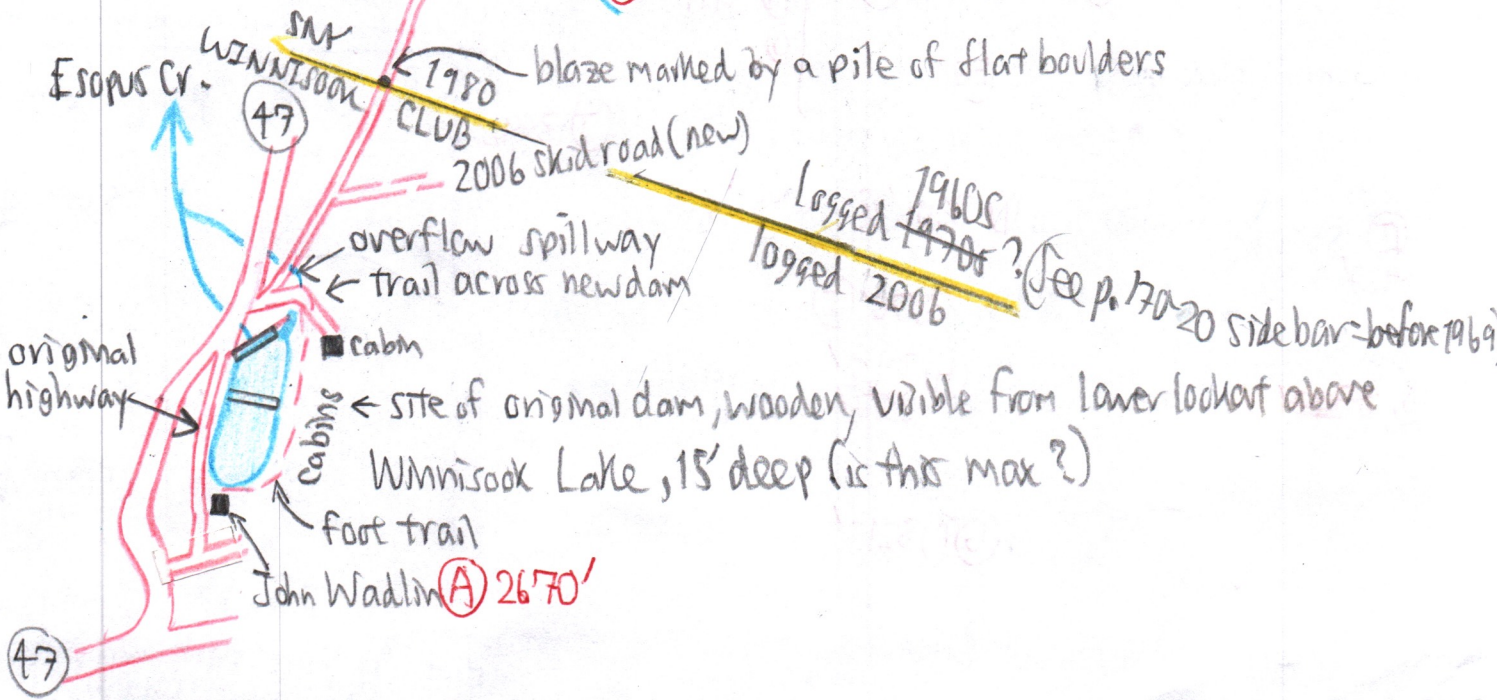 SMt
WINNISOOK
CLUB
1980
blaze marked by a pile of flat boulders
Esopus Cr.
47
2006 skid road (new)
logged 1960s
1970s ?
(See p. 170-20 sidebar=before 1969)
logged 2006
overflow spillway
trail across new dam
cabin
original
highway
cabins
site of original dam, wooden, visible from lower lookout above
Winnisook Lake, 15' deep (is this max?)
foot trail
John Wadlin A 2670'
47